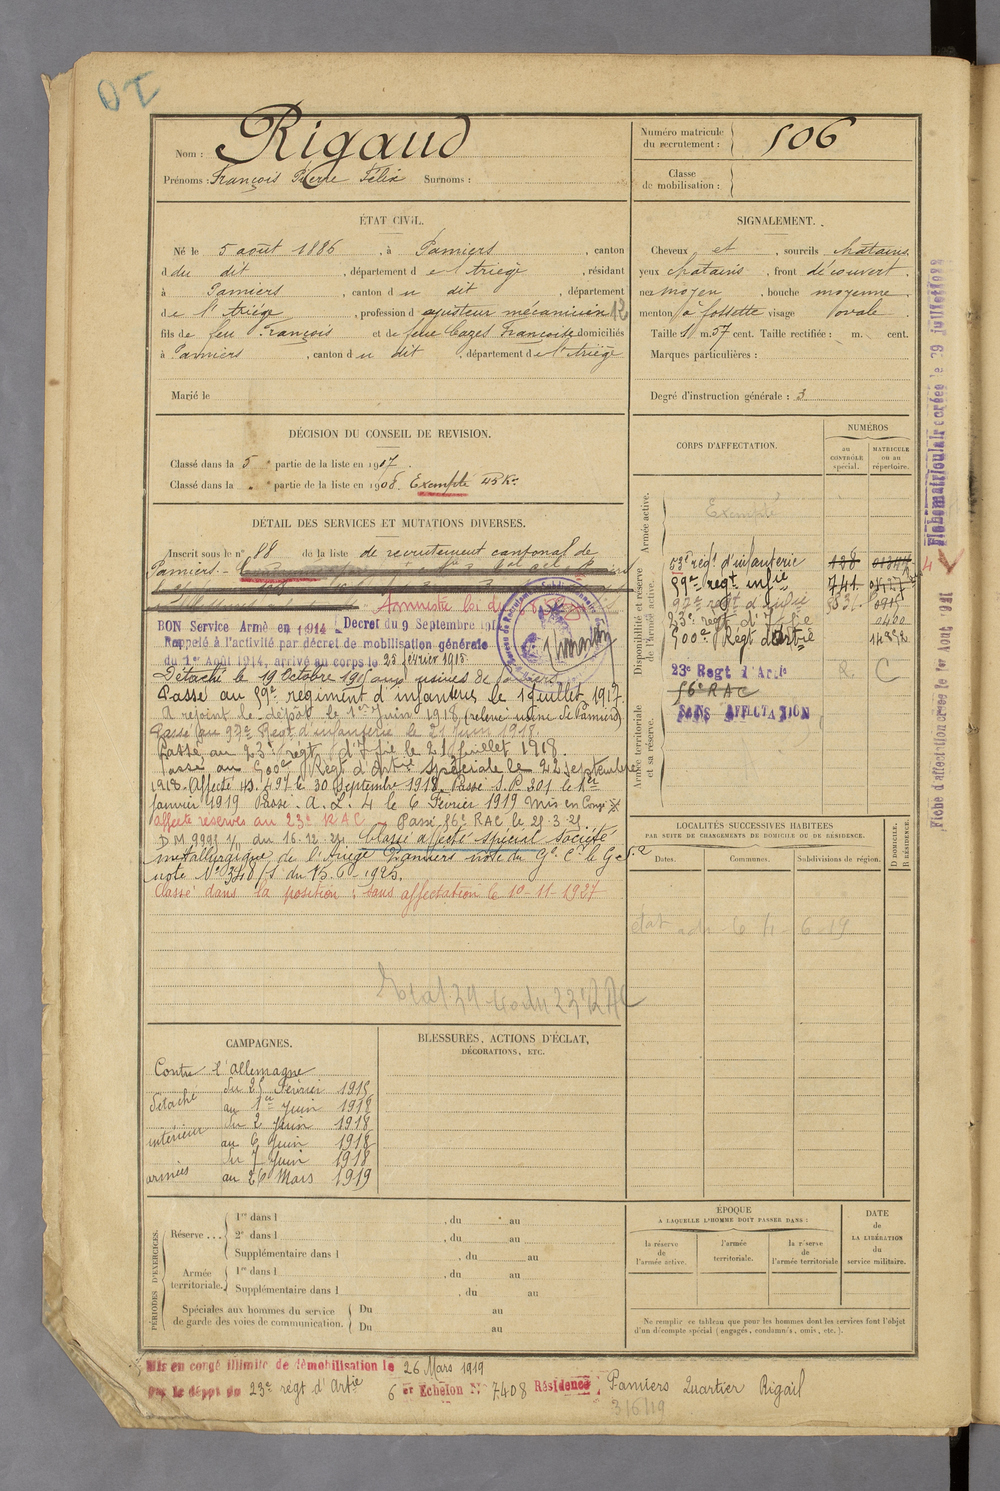 Nom : Rigaud
Prénoms : François Pierre Félix Surnoms :
Numéro matricule
du recrutement : 506
Classe
de mobilisation :
ÉTAT CIVIL.
Né le 5 août 1886, à Pamiers, canton
d du dit, département d e l'Ariège, résidant
à Pamiers, canton d u dit, département
de l'Ariége, profession d ajusteur mécanicien 12
fils de feu François et de feue Cazes Françoise domiciliés
à Pamiers, canton d u dit, département d e l'Ariège
Marié le
SIGNALEMENT.
Cheveux et, sourcils chatains.
yeux chatains, front découvert.
nez moyen, bouche moyenne.
menton à fossette visage ovale.
Taille 1 m. 57 cent. Taille rectifiée : m. cent.
Marques particulières :
Degré d'instruction générale : 3
DÉCISION DU CONSEIL DE REVISION.
Classé dans la 5e partie de la liste en 1907.
Classé dans la e partie de la liste en 1908. Exempté
DÉTAIL DES SERVICES ET MUTATIONS DIVERSES.
Inscrit sous le n° 88 de la liste de recrutement cantonal de
Pamiers.
BON Service Armé en 1914 Decret du 9 Septembre 191
Rappelé à l'activité par décret de mobilisation générale
du 1er Août 1914, arrivé au corps le 25 février 1915
Détaché le 19 Octobre 1915 aux usines de Pamiers.
Passé au 99e régiment d'infanterie le 1 juillet 1917
A rejoint le dépôt le 1er Juin 1918 (relevé usine de Pamiers)
Passé au 97e Regt d'infanterie le 21 Juin 1918.
Passé au 23e regt d'Ifie le 21 Juillet 1918.
Passé au 500e Regt d'Artie spéciale le 22 septembre
1918. Affecté A.S. 497 le 30 Septembre 1918. Passé S.P. 301 le 1er
Janvier 1919 Passé A.L. 4 le 6 Février 1919 Mis en Congé
affecté réserves au 23e RAC Passé 56e RAC le 21-3-21
D M 9991 1/11 du 16.12.21 Classé affecté spécial société
métallurgique de l'Ariège Pamiers note du Gal Ct le G
note N° 3410/S du 15-6-1925.
Classé dans la position : sans affectation le 10-11-1927
CORPS D'AFFECTATION.
NUMÉROS
au
CONTRÔLE
spécial.
MATRICULE
ou au
répertoire.
Armée active.
Exempté
Disponibilité et réserve
de l'armée active.
53e régt d'infanterie 138
99e regt infie 741
97e regt d'infie
23e regt d'Ifie 0400
500e Régt d'Artie
23e Regt d'Artie R C
56e RAC
SANS AFFECTATION
Armée territoriale
et sa réserve.
LOCALITÉS SUCCESSIVES HABITÉES
PAR SUITE DE CHANGEMENTS DE DOMICILE OU DE RÉSIDENCE.
Dates. Communes. Subdivisions de région. D DOMICILE. R RÉSIDENCE.
CAMPAGNES.
Contre l'Allemagne
détaché du 25 Février 1915
au 1er Juin 1918
intérieur du 2 Juin 1918
au 6 Juin 1918
armées du 7 Juin 1918
au 26 Mars 1919
BLESSURES, ACTIONS D'ÉCLAT,
DÉCORATIONS, ETC.
PÉRIODES D'EXERCICES.
Réserve ... 1re dans l , du au
2e dans l , du au
Supplémentaire dans l , du au
Armée
territoriale. 1re dans l , du au
Supplémentaire dans l , du au
Spéciales aux hommes du service
de garde des voies de communication. Du au
Du au
ÉPOQUE
A LAQUELLE L'HOMME DOIT PASSER DANS :
la réserve
de
l'armée active.
l'armée
territoriale.
la réserve
de
l'armée territoriale
DATE
de
LA LIBÉRATION
du
service militaire.
Ne remplir ce tableau que pour les hommes dont les services font l'objet
d'un décompte spécial (engagés, condamnés, omis, etc.).
Mis en congé illimité de démobilisation le 26 Mars 1919
Par le dépôt du 23e régt d'Artie 6 er Echelon N° 7408 Résidence : Pamiers Quartier Rigail
3/6/19
Fiche matriculaire créée le 29 juillet 1922
Fiche d'affectation créée le 1er Août 1921